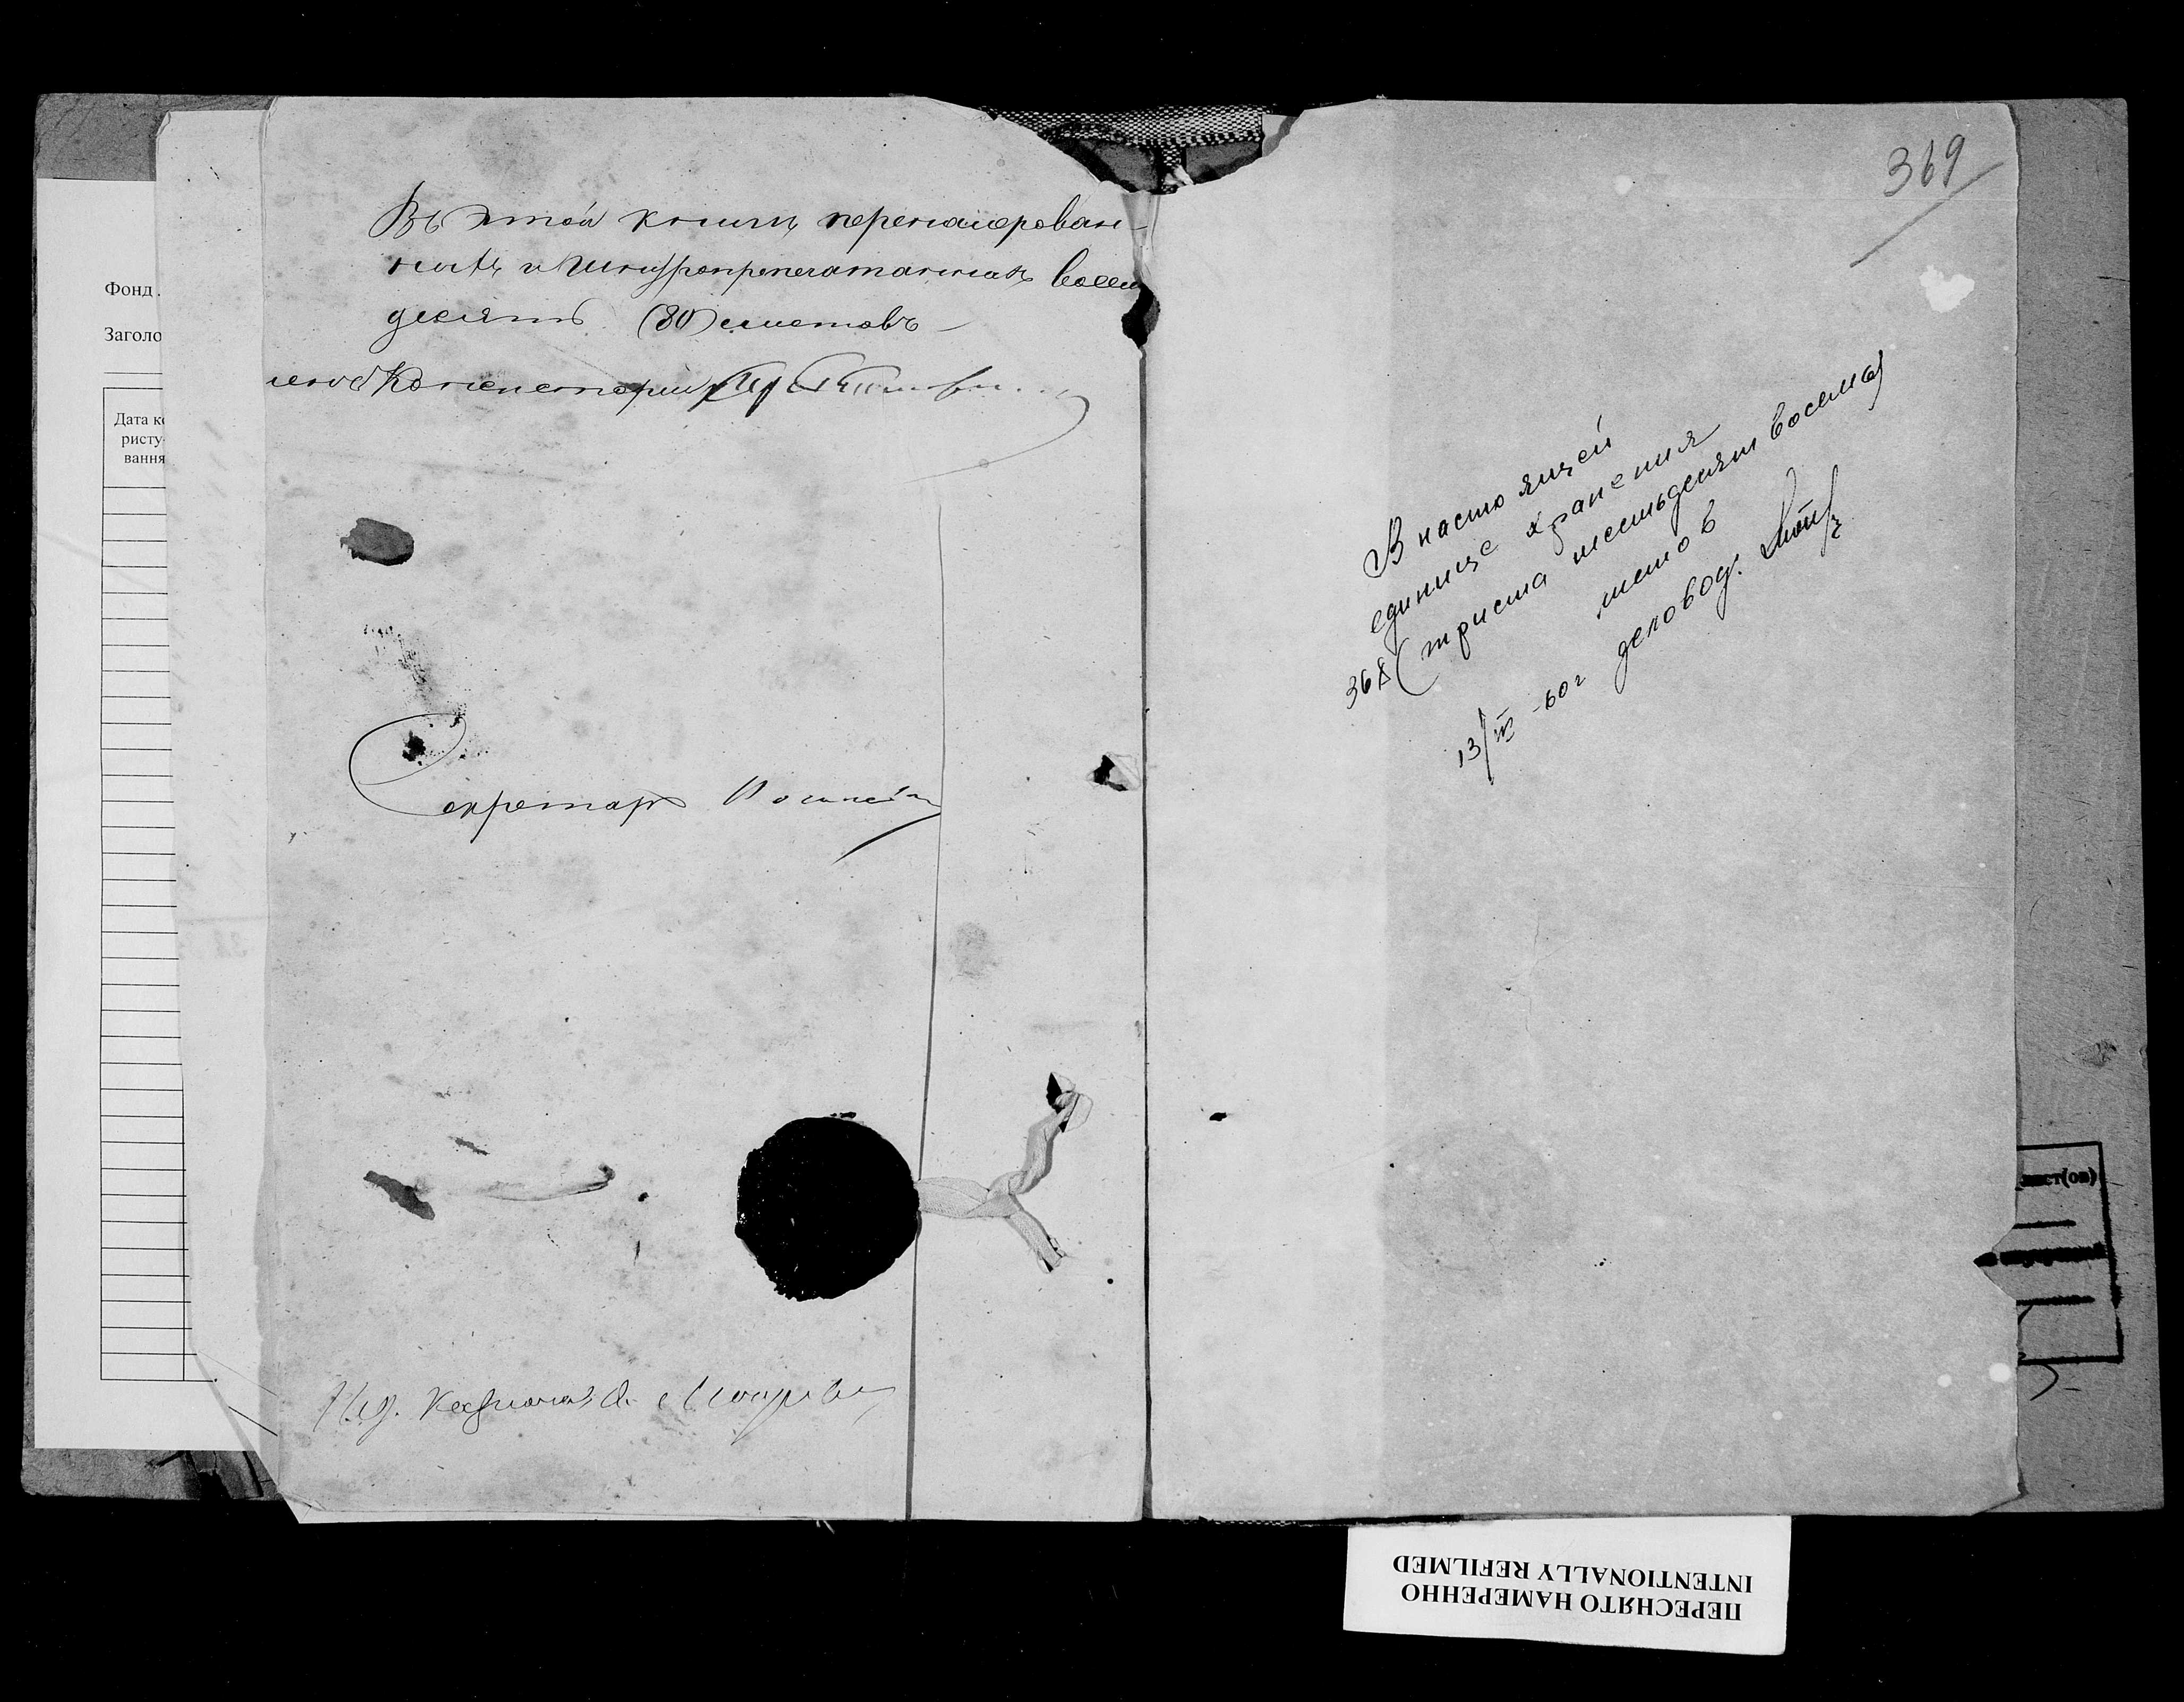 Фонд
Заголо
Дата ко
ристу-
вання
Въ этой книгѣ перенумерован-
ныхъ и шнуропрепечатанныхъ восем
десятъ (80) листовъ
Членъ Консисторіи
Секретарь
369
В настоящей
единице хранения
368 (триста шестьдесят восемь)
листов
13/IV-60г деловод.
лист(ов)
ПЕРЕСНЯТО НАМЕРЕННО
INTENTIONALLY REFILMED